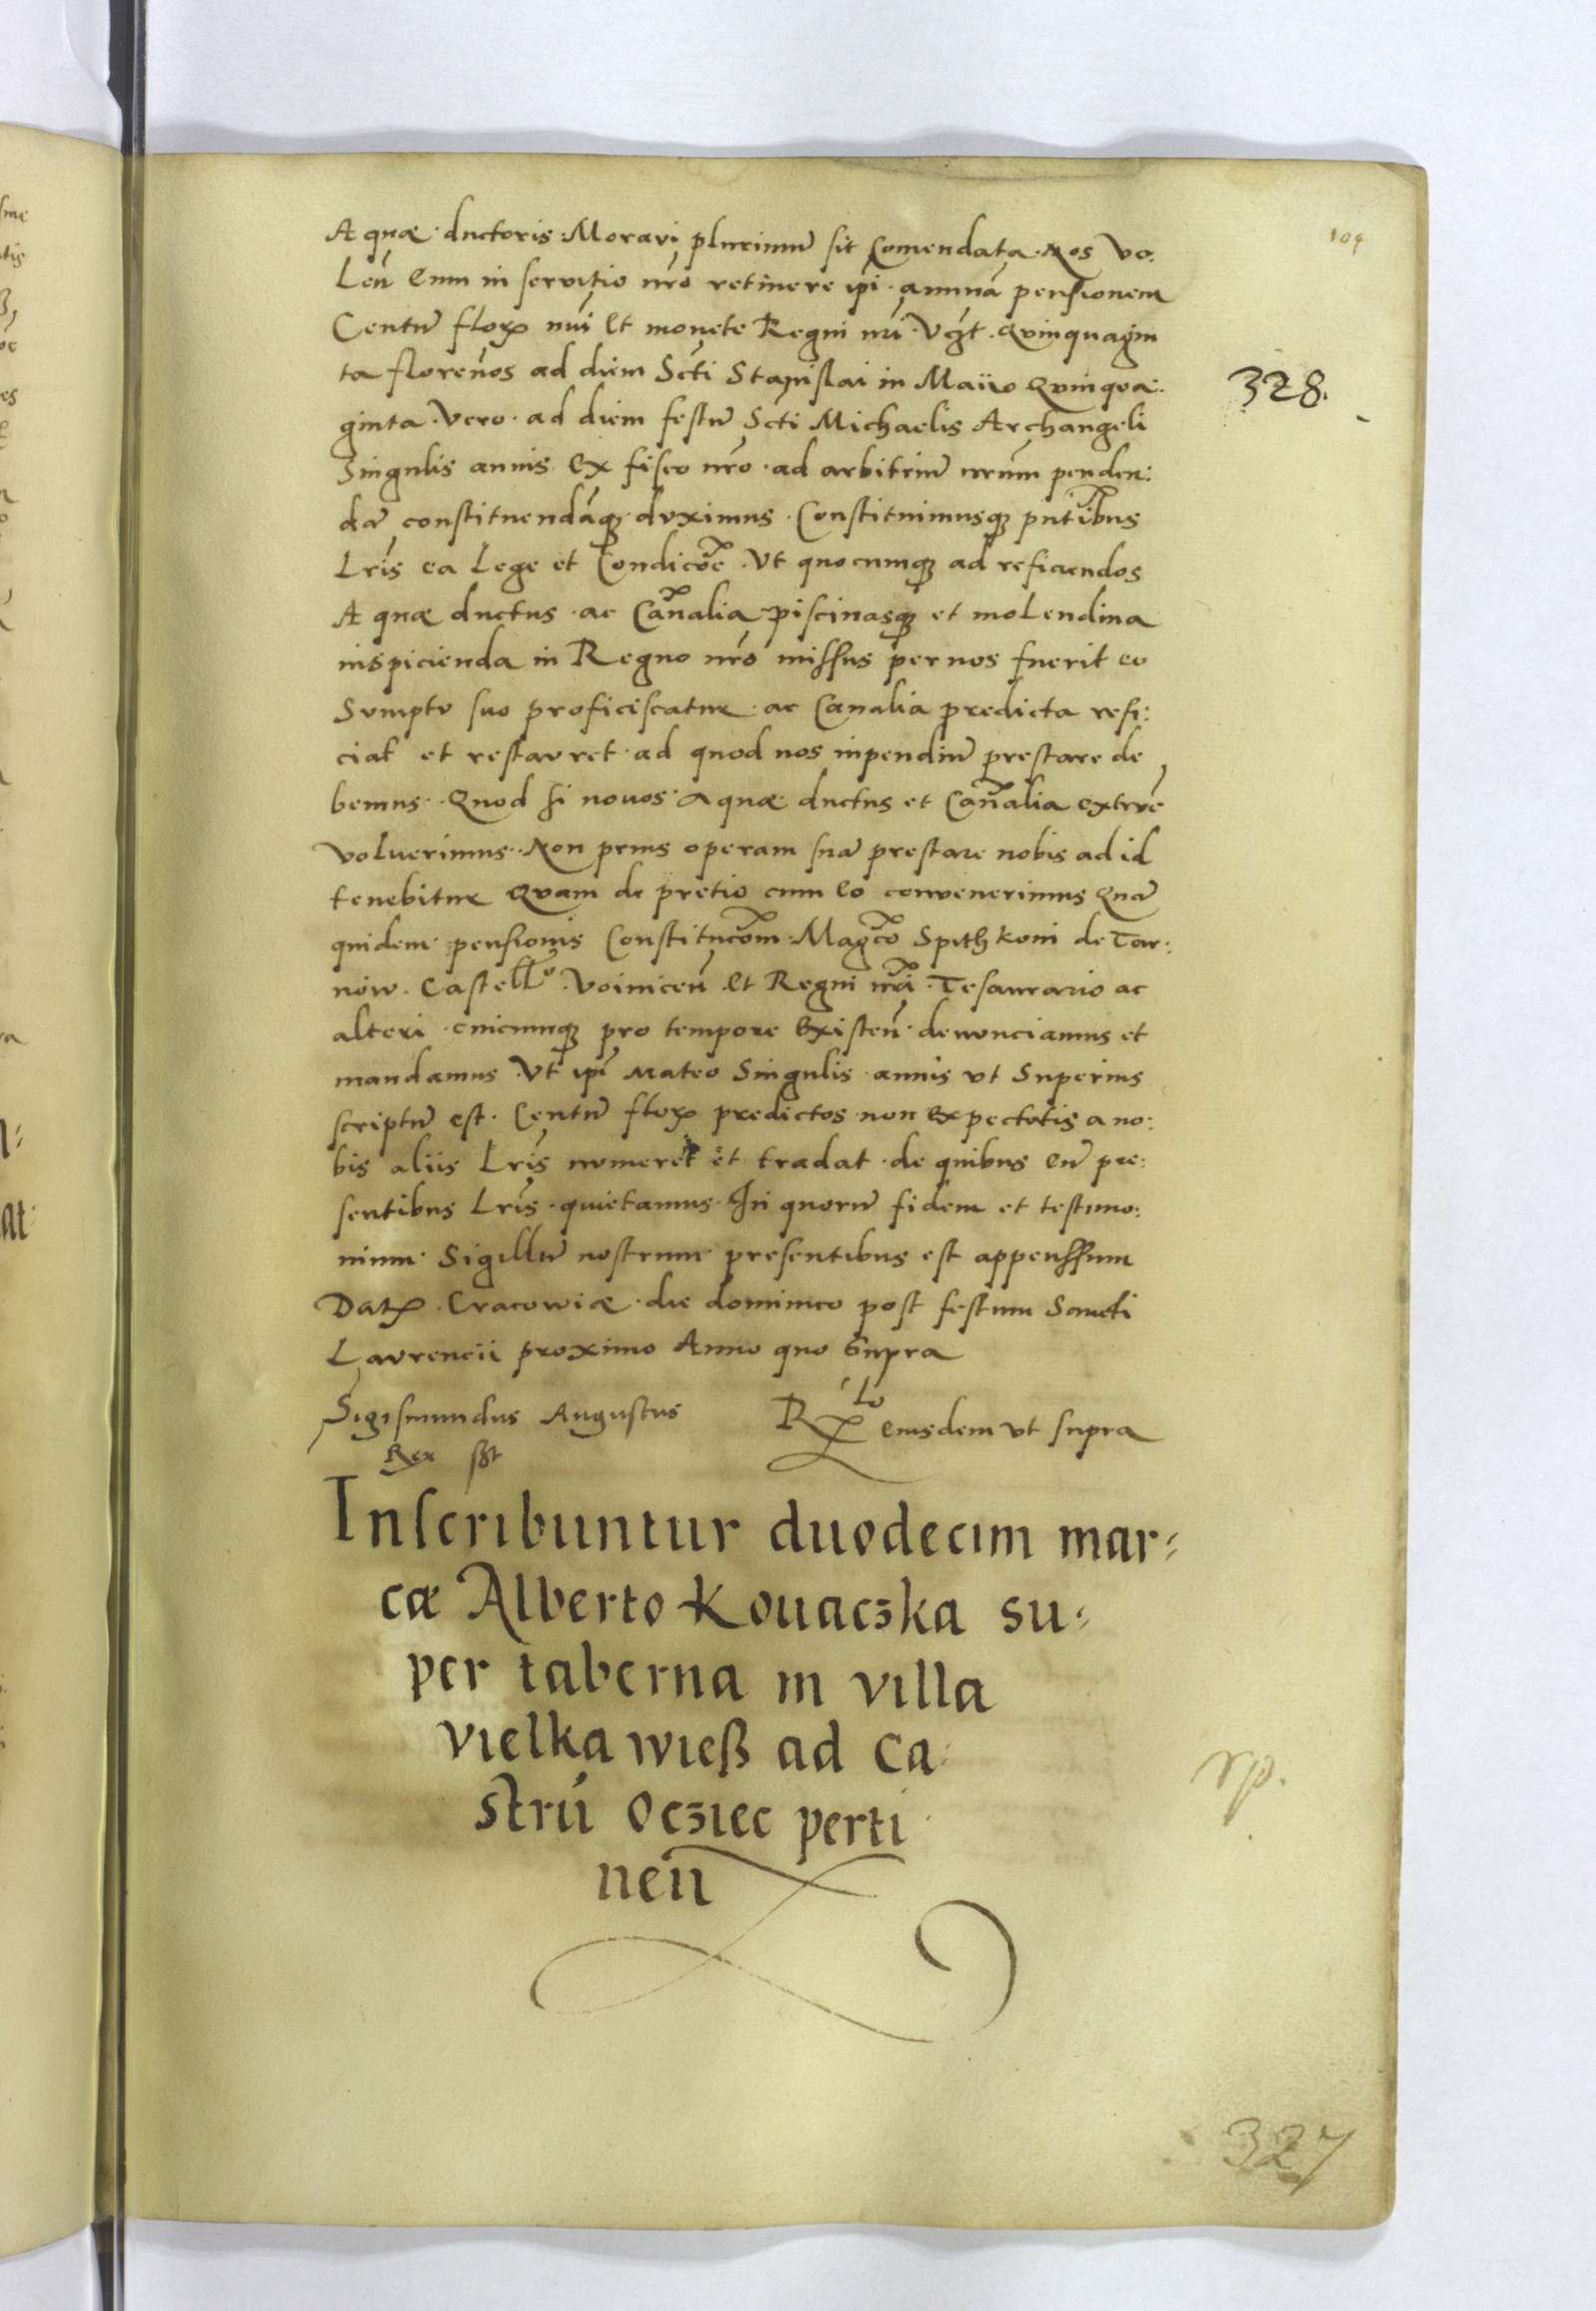 109
Aquæ ductoris Moravi plurimū sit Comendata Nos vo:
Leñ Eum in servitio nrō retinere ipī annuā pensionem
Centū flor nūi Et monete Regni nrī Vczt Qvinquagin
ta florenos ad diem Scti Stanislai in Maiio Qvinqva:
ginta Vero ad diem festū Scti Michaelis Archangeli
Singulis annis Ex fisco nrō ad arbitriū nrūm penden:
dā constituendāqȝ dvximus Constituimusqȝ pntibus
Lrīs ea Lege et Condicōe Vt quocumqȝ ad reficiendos
Aquæ ductus ac Cañalia piscinasqȝ et moLendina
inspicienda in Regno nrō missus per nos fuerit eo
Svmptv svo proficiscatur ac Canalia predicta refi:
ciat et restavret ad quod nos inpendiū prestare de
bemus Quod si novos Aquæ ductus et Cañalia extrvē
volverimus Non prius operam suā prestare nobis ad id
tenebitur Qvam de pretio cum Eo convenerimus Quā
quidem pensionis Constitucōm Magco Spithkoni de Tar:
now Castello Voiniceñ Et Regni nrī Tesaurario ac
alteri cuicumqȝ pro tempore Existeñ denunciamus et
mandamus Vt ipī Mateo Singulis annis vt Superius
scriptū est Centū flor predictos non Expectatis a no:
bis aliis Lrīs nvmeret et tradat de quibus Eū pre:
sentibus Lrīs quietamus In quorū fidem et testimo:
nium Sigillū nostrum presentibus est appenssum
Dat Cracowiæ die dominico post festum Sancti
Lavrencii proximo Anno quo Supra
Sigismundus Augustus
Rex sst
Rlo eiusdem vt supra
Inscribuntur duodecim mar=
cæ Alberto Kouaczka su=
per taberna in villa
vielka wieß ad Ca
strū Ocziec perti
neñ
328.
rp.
327